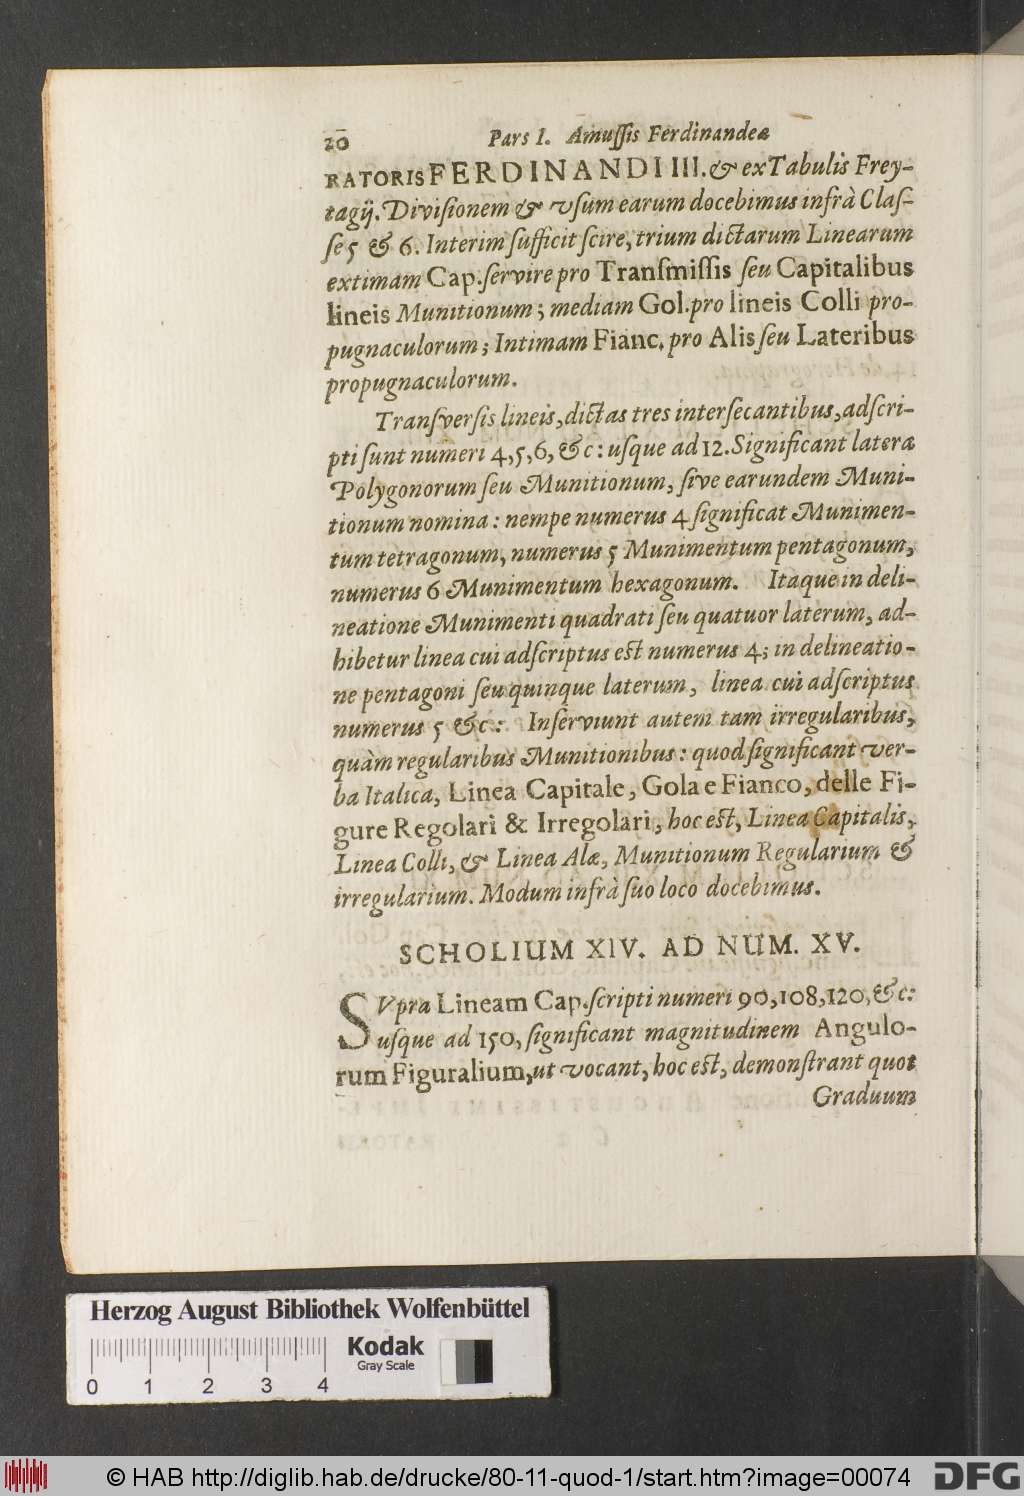 20 Pars I. Amussis Ferdinandeæ
RATORIS FERDINANDI III. & ex Tabulis Frey-
tagij. Divisionem & vsum earum docebimus infrà Claſ-
ſe 5 & 6. Interim ſufficit ſcire, trium dictarum Linearum
extimam Cap. ſervire pro Tranſmiſſis ſeu Capitalibus
lineis Munitionum; mediam Gol. pro lineis Colli pro-
pugnaculorum; Intimam Fianc. pro Alis ſeu Lateribus
propugnaculorum.
Tranſverſis lineis, dictas tres interſecantibus, adſcri-
pti ſunt numeri 4, 5, 6, &c: uſque ad 12. Significant latera
Polygonorum ſeu Munitionum, ſive earundem Muni-
tionum nomina: nempe numerus 4 ſignificat Munimen-
tum tetragonum, numerus 5 Munimentum pentagonum,
numerus 6 Munimentum hexagonum. Itaque in deli-
neatione Munimenti quadrati ſeu quatuor laterum, ad-
hibetur linea cui adſcriptus est numerus 4; in delineatio-
ne pentagoni ſeu quinque laterum, linea cui adſcriptus
numerus 5 &c: Inſerviunt autem tam irregularibus,
quàm regularibus Munitionibus: quod ſignificant ver-
ba Italica, Linea Capitale, Gola e Fianco, delle Fi-
gure Regolari & Irregolari, hoc est, Linea Capitalis,
Linea Colli, & Linea Alæ, Munitionum Regularium &
irregularium. Modum infrà ſuo loco docebimus.
SCHOLIUM XIV. AD NUM. XV.
SVpra Lineam Cap. ſcripti numeri 90, 108, 120, &c:
uſque ad 150, ſignificant magnitudinem Angulo-
rum Figuralium, ut vocant, hoc est, demonſtrant quot
Graduum
Herzog August Bibliothek Wolfenbüttel
Kodak
Gray Scale
0 1 2 3 4
© HAB http://diglib.hab.de/drucke/80-11-quod-1/start.htm?image=00074
DFG